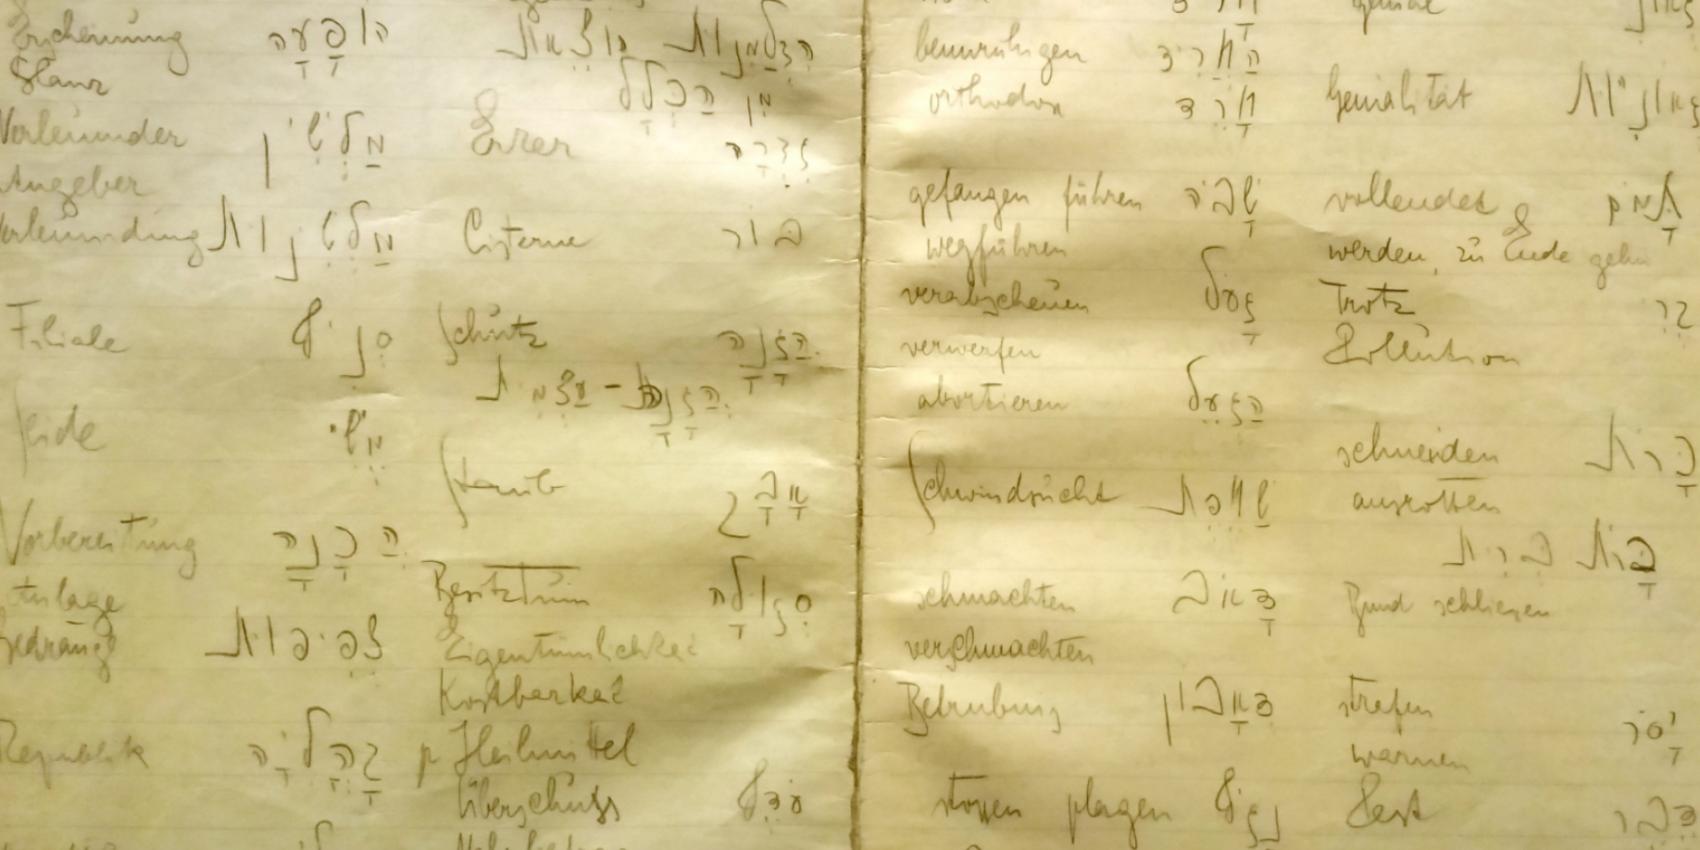 Erscheinung הוֹפָעָה
Glanz
Verleumder מַלְשִׁין
Angeber
Verleumdung מַלְשִׁינוּת
Filiale סְנִיף
Seide מֶשִׁי
Vorbereitung הֲכָנָה
Anlage
Gedränge צְפִיפוּת
Republik קְהָלִיָּה
הִזְדַּמְּנוּת הוֹצֵאת
מִן הַכְּלָל
Erker
Cisterne בור
Schutz הֲגָנָה
הֲגָנַת-עַצְמִית
Staub אָבָק
Besitztum סְגוּלָה
Eigentümlichkeit
Kostbarkeit
Heilmittel
Überschuss עֹדֶף
beunruhigen הֶחֱרִיד
orthodox חָרֵד
gefangen führen שָׁבָה
wegführen
verabscheuen גָּעַל
verwerfen
abortieren
Schwindsucht שַׁחֶפֶת
schmachten דָּאַב
verschmachten
Betrübung דַּאֲבוֹן
stossen plagen נָגַף
genial
Genialität גְּאוֹנִיּוּת
vollendet
werden, zu Ende gehn
Trotz
Pollution
schneiden כָּרַת
ausrotten
כָּרַת בְּרִית
Bund schliessen
strafen יִסֵּר
warnen
Pest דֶּבֶר